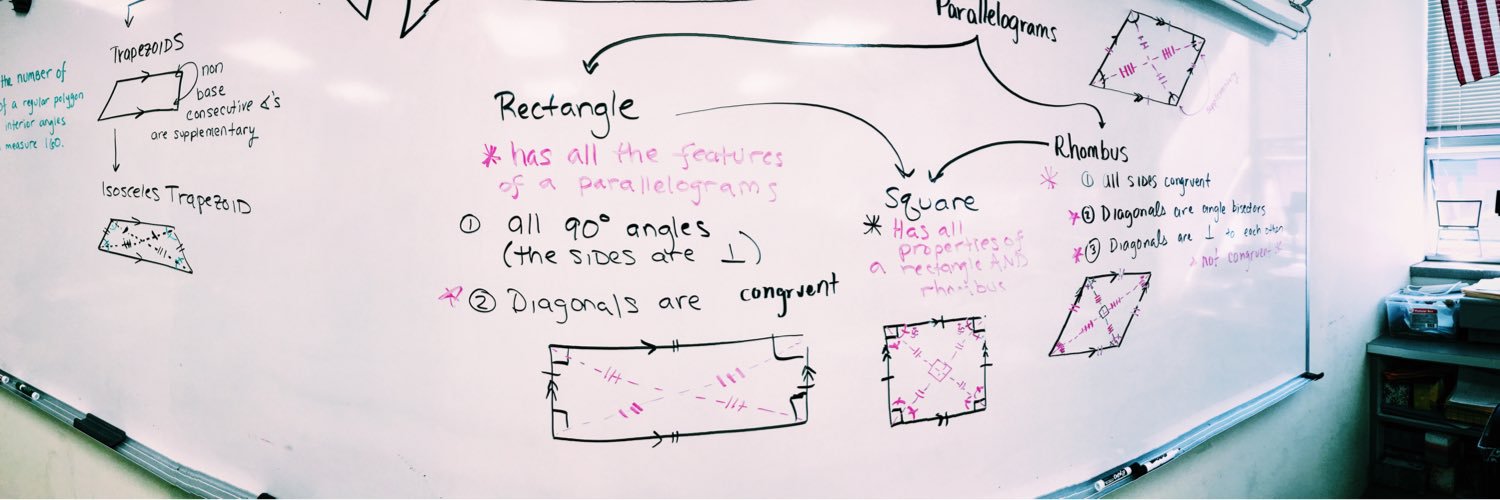 the number of
of a regular polygon
interior angles
measure 160.
TrapezoIDS
non
base
consecutive ∡'s
are supplementary
Isosceles TrapezoID
Parallelograms
supplementary
Rectangle
* has all the features
of a parallelograms
① all 90° angles
(the sIDes are ⊥)
* ② Diagonals are congruent
Square
* Has all
properties of
a rectangle AND
rhombus
Rhombus
* ① all sIDes congruent
* ② Diagonals are angle bisectors
* ③ Diagonals are ⊥ to each other
not congruent